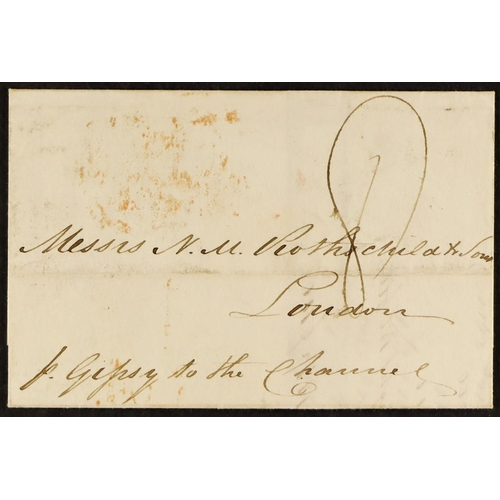 8
Messrs N. M. Rothschild & Sons
London
p. Gipsy to the Channel